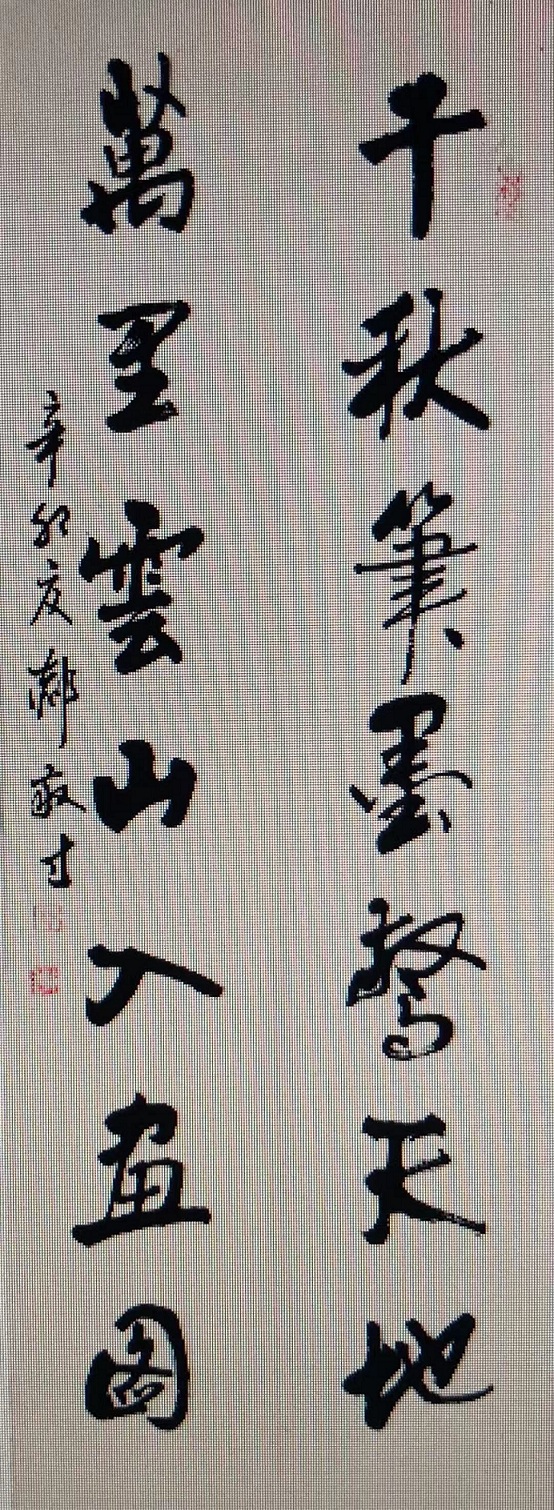 千秋筆墨驚天地
萬里雲山入畫圖
辛卯夏 敬才